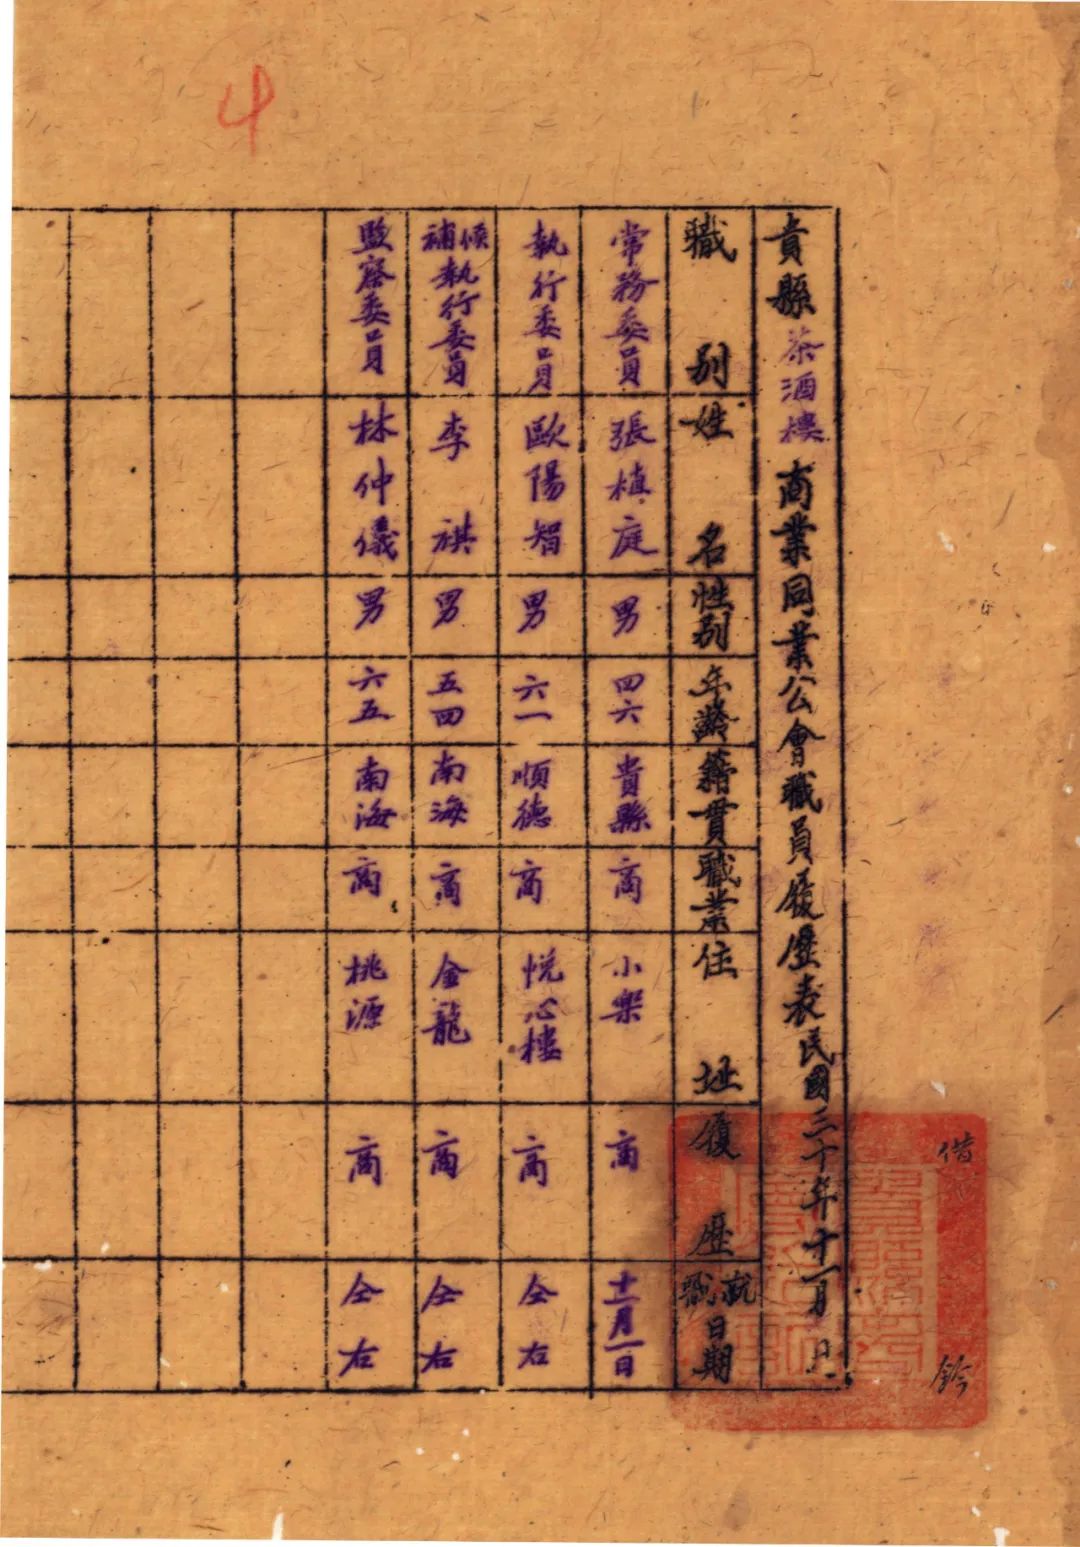 4
貴縣茶酒樓商業同業公會職員履歷表民國三十年十一月 日
職別 姓名 性別 年齡 籍貫 職業 住址 履歷 就職日期
常務委員 張植庭 男 四六 貴縣 商 小樂 商 十一月一日
執行委員 歐陽智 男 六一 順德 商 悅心樓 商 仝右
候補執行委員 李祺 男 五四 南海 商 金龍 商 仝右
監察委員 林仲儀 男 六五 南海 商 桃源 商 仝右
借鈐